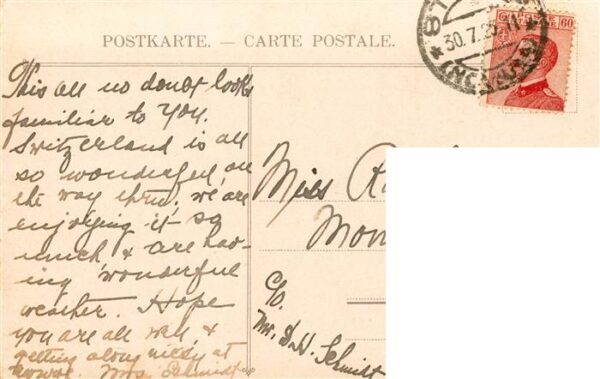 POSTKARTE. — CARTE POSTALE.
60
30.7.25.11
This all no doubt looks
familiar to you.
Switzerland is all
so wonderful, on
the way thru, we're
enjoying it so
much & are hav-
ing wonderful
weather. Hope
you are all well, &
getting along nicely at
Miss
Mon
c/o.
Mr. D. H. Schmidt
Mrs Schmidt